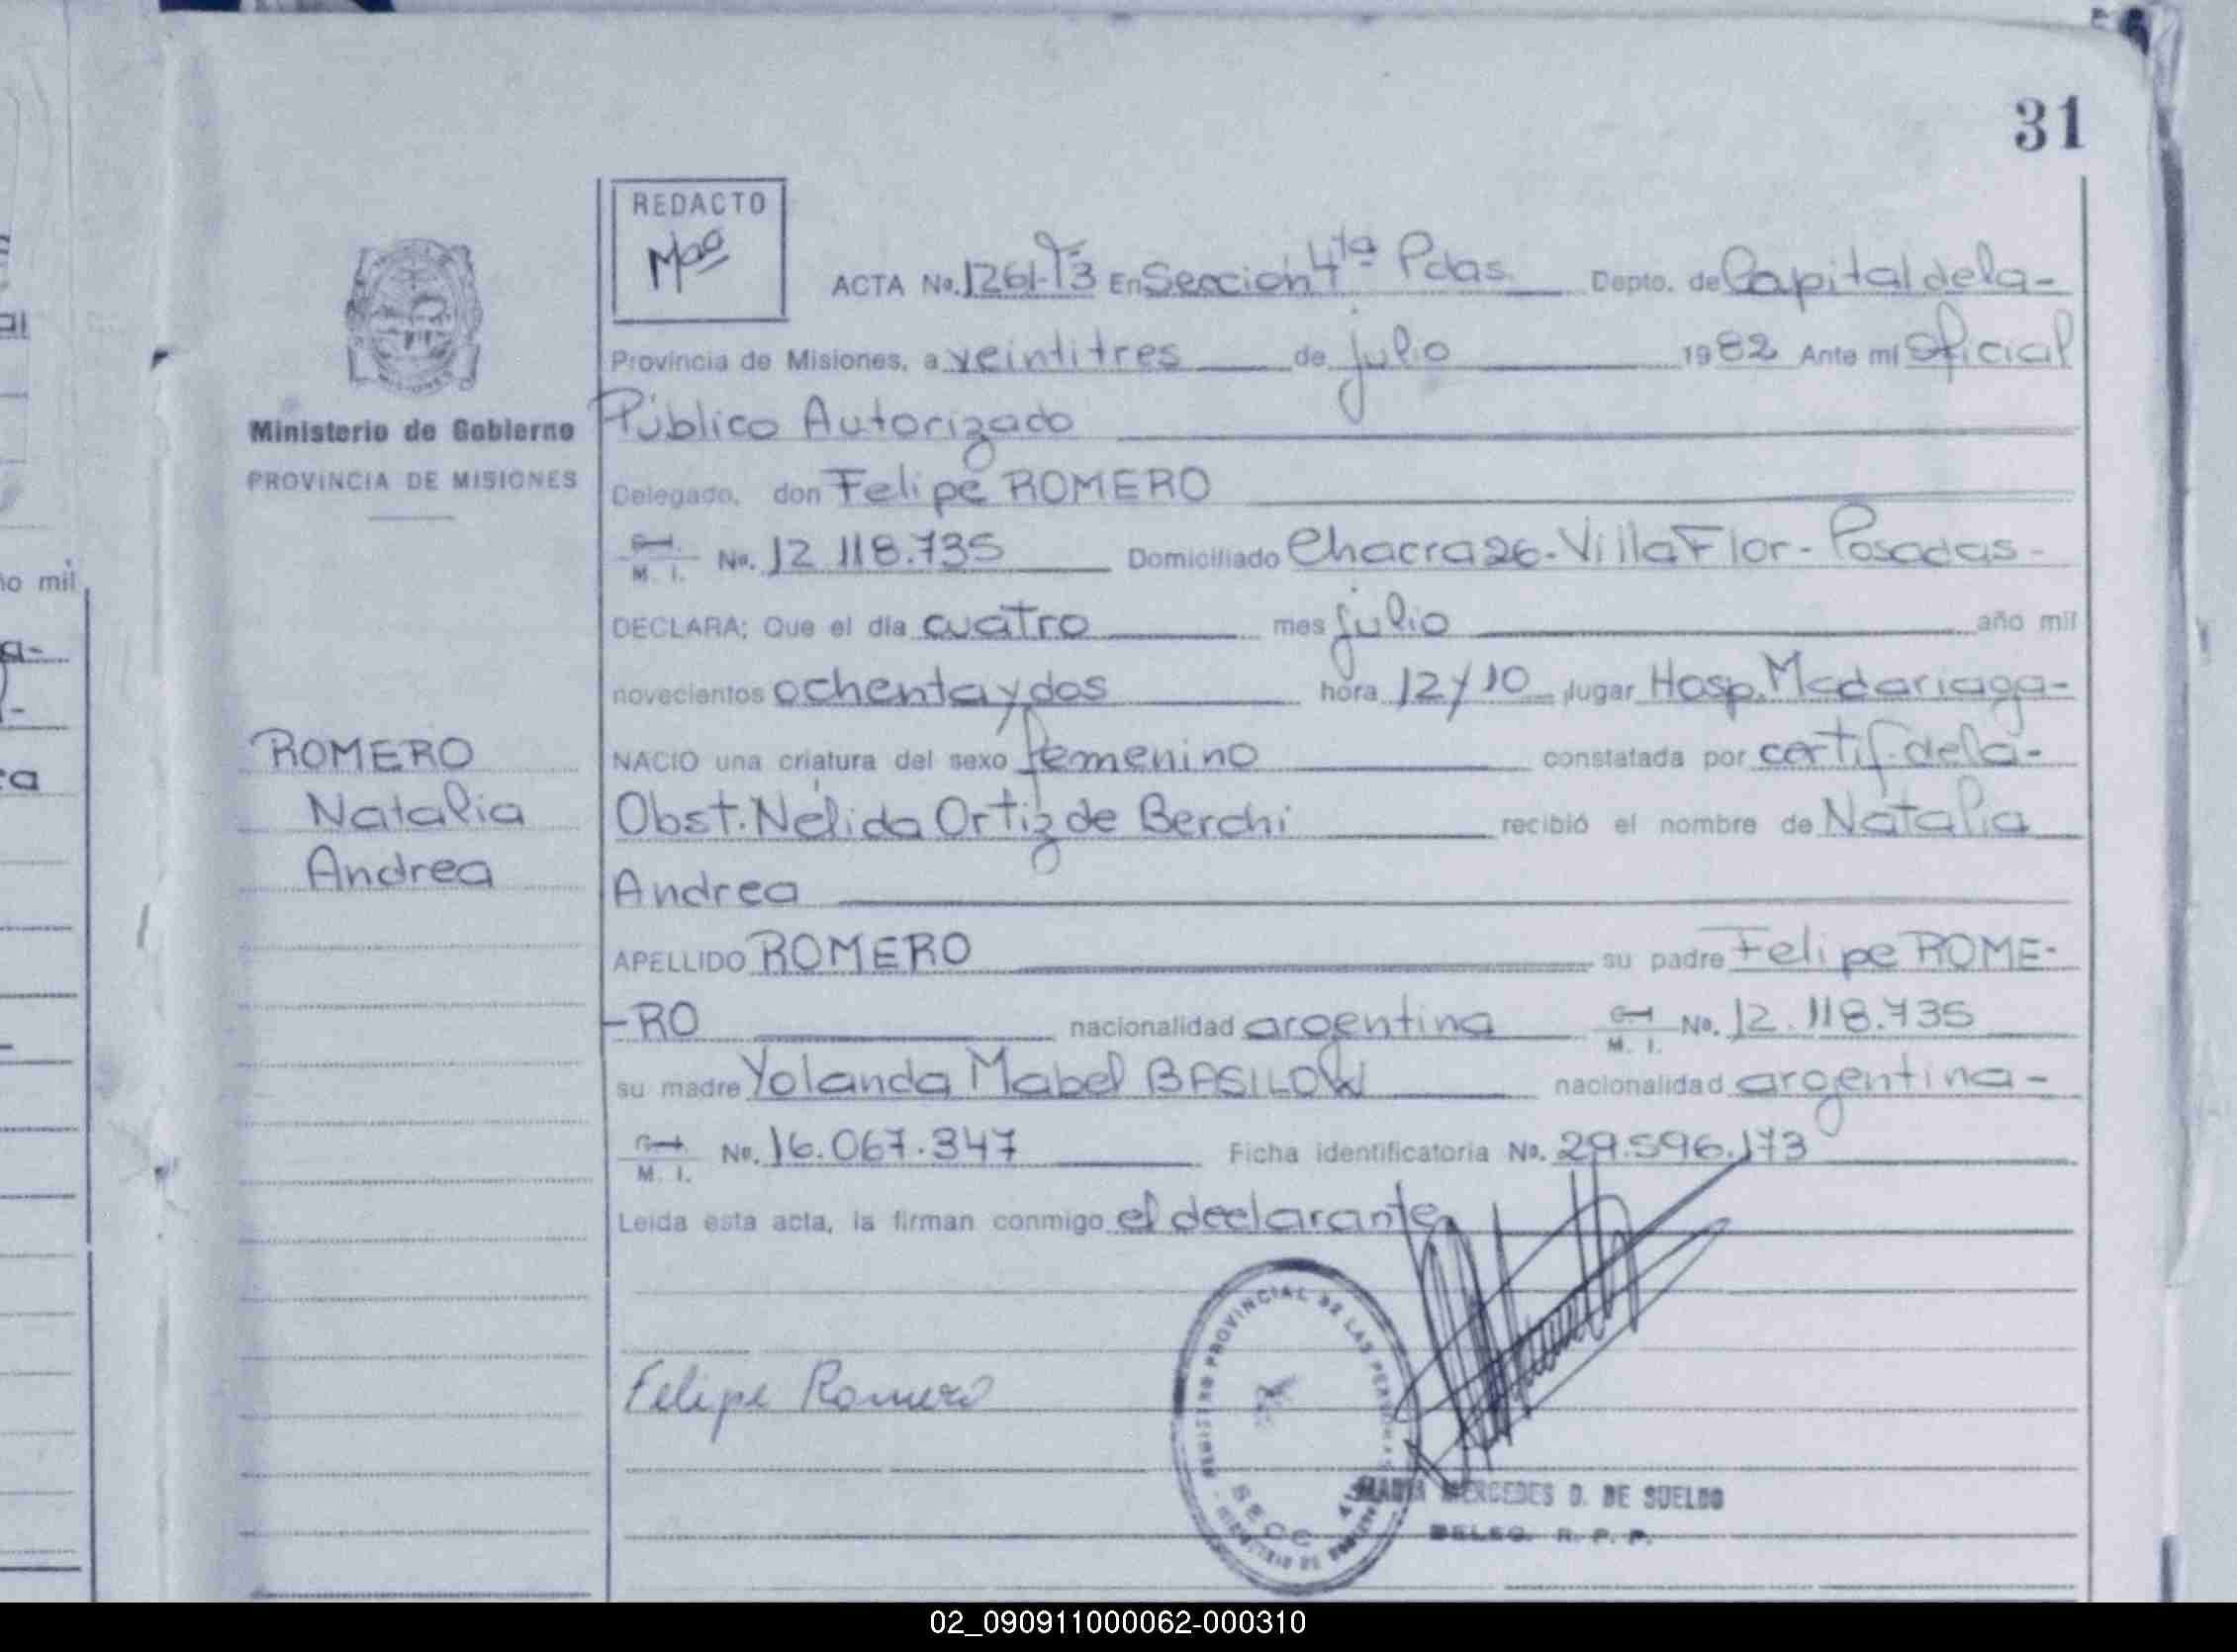 31
REDACTO
Mao
ACTA No. 1261-T3 En Sección 4ta Pdas. Depto. de Capital de la-
Provincia de Misiones, a veintitres de julio 1982 Ante mí Oficial
Público Autorizado
Ministerio de Gobierno
PROVINCIA DE MISIONES
Delegado, don Felipe ROMERO
M. I. No. 12.118.735 Domiciliado Chacra 26-Villa Flor-Posadas-
DECLARA; Que el día cuatro mes julio año mil
novecientos ochenta y dos hora 12/10 lugar Hosp. Madariaga-
NACIO una criatura del sexo femenino constatada por certif. de la-
Obst. Nélida Ortiz de Berchi recibió el nombre de Natalia
Andrea
ROMERO
Natalia
Andrea
APELLIDO ROMERO su padre Felipe ROME-
-RO nacionalidad argentina M. I. No. 12.118.735
su madre Yolanda Mabel BASILOW nacionalidad argentina-
M. I. No. 16.067.347 Ficha identificatoria No. 29.596.173
Leída esta acta, la firman conmigo el declarante
Felipe Romero
REGISTRO PROVINCIAL DE LAS PERSONAS
SECC. 4ta
MARIA MERCEDES D. DE SUELDO
DELEG. R. P. P.
ño mil
02_090911000062-000310